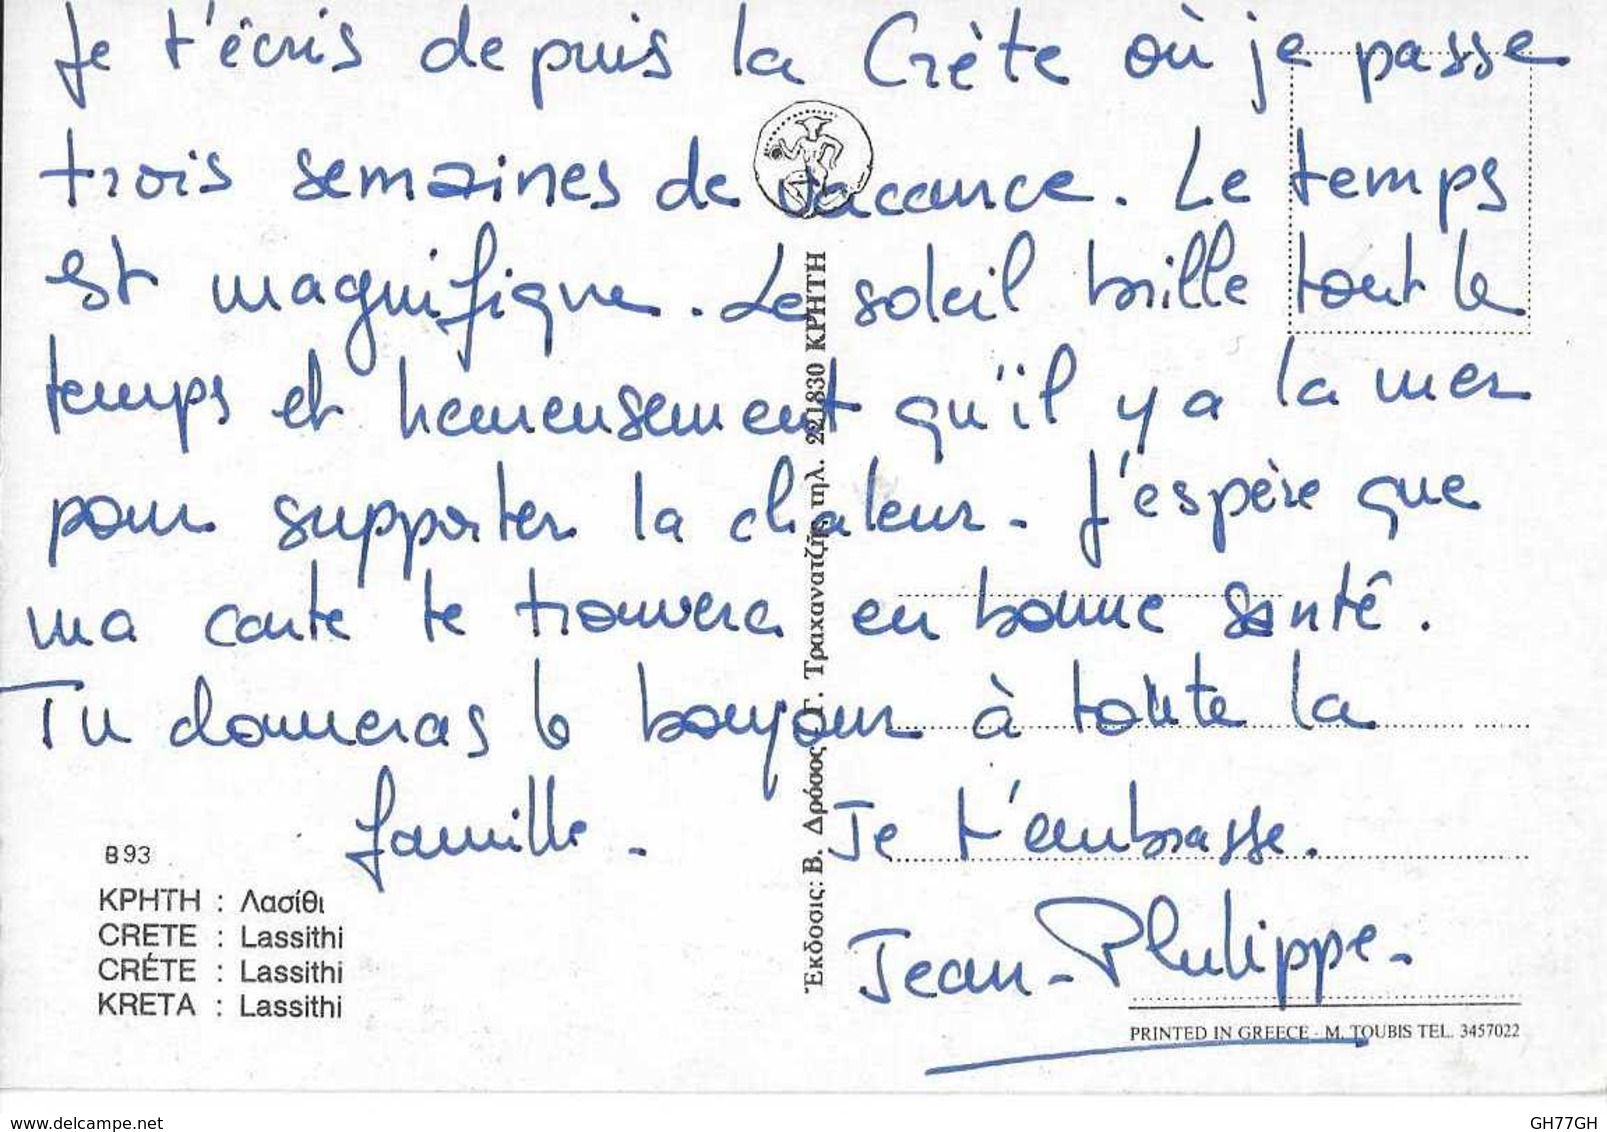 Je t'écris depuis la Crète où je passe
trois semaines de vacance. Le temps
est magnifique. Le soleil brille tout le
temps et heureusement qu'il y a la mer
pour supporter la chaleur. J'espère que
ma carte te trouvera en bonne santé.
Tu donneras le bonjour à toute la
famille.
Je t'embrasse.
Jean-Philippe.
B93
ΚΡΗΤΗ : Λασίθι
CRETE : Lassithi
CRÉTE : Lassithi
KRETA : Lassithi
Ἔκδοσις: Β. Δρόσος Γ. Τραχανατζῆς τηλ. 221830 ΚΡΗΤΗ
PRINTED IN GREECE - M. TOUBIS TEL. 3457022
www.delcampe.net
GH77GH